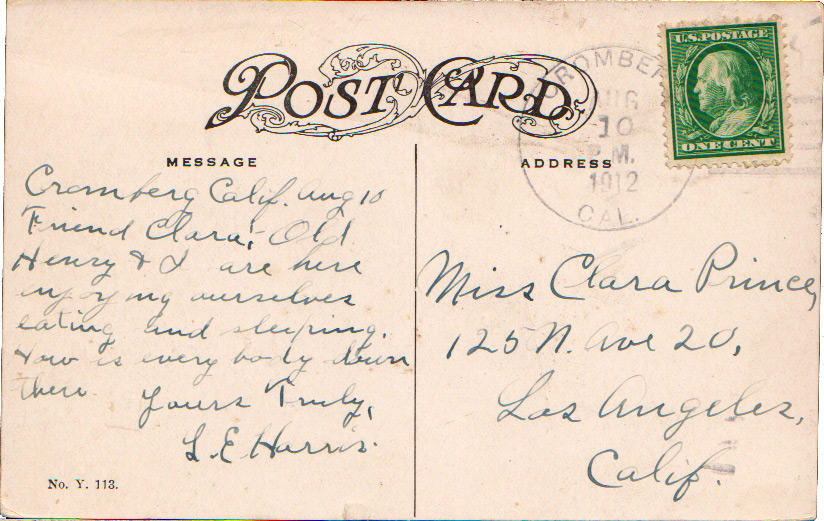 POST CARD
CROMBERG
AUG
10
P.M.
1912
CAL.
U.S. POSTAGE
ONE CENT
MESSAGE
Cromberg Calif. Aug 10
Friend Clara;- Old
Henry & I are here
enjoying ourselves
eating and sleeping.
How is every body down
there.
Yours Truly,
L. E. Harris.
No. Y. 113.
ADDRESS
Miss Clara Prince,
125 N. Ave 20,
Los Angeles,
Calif.